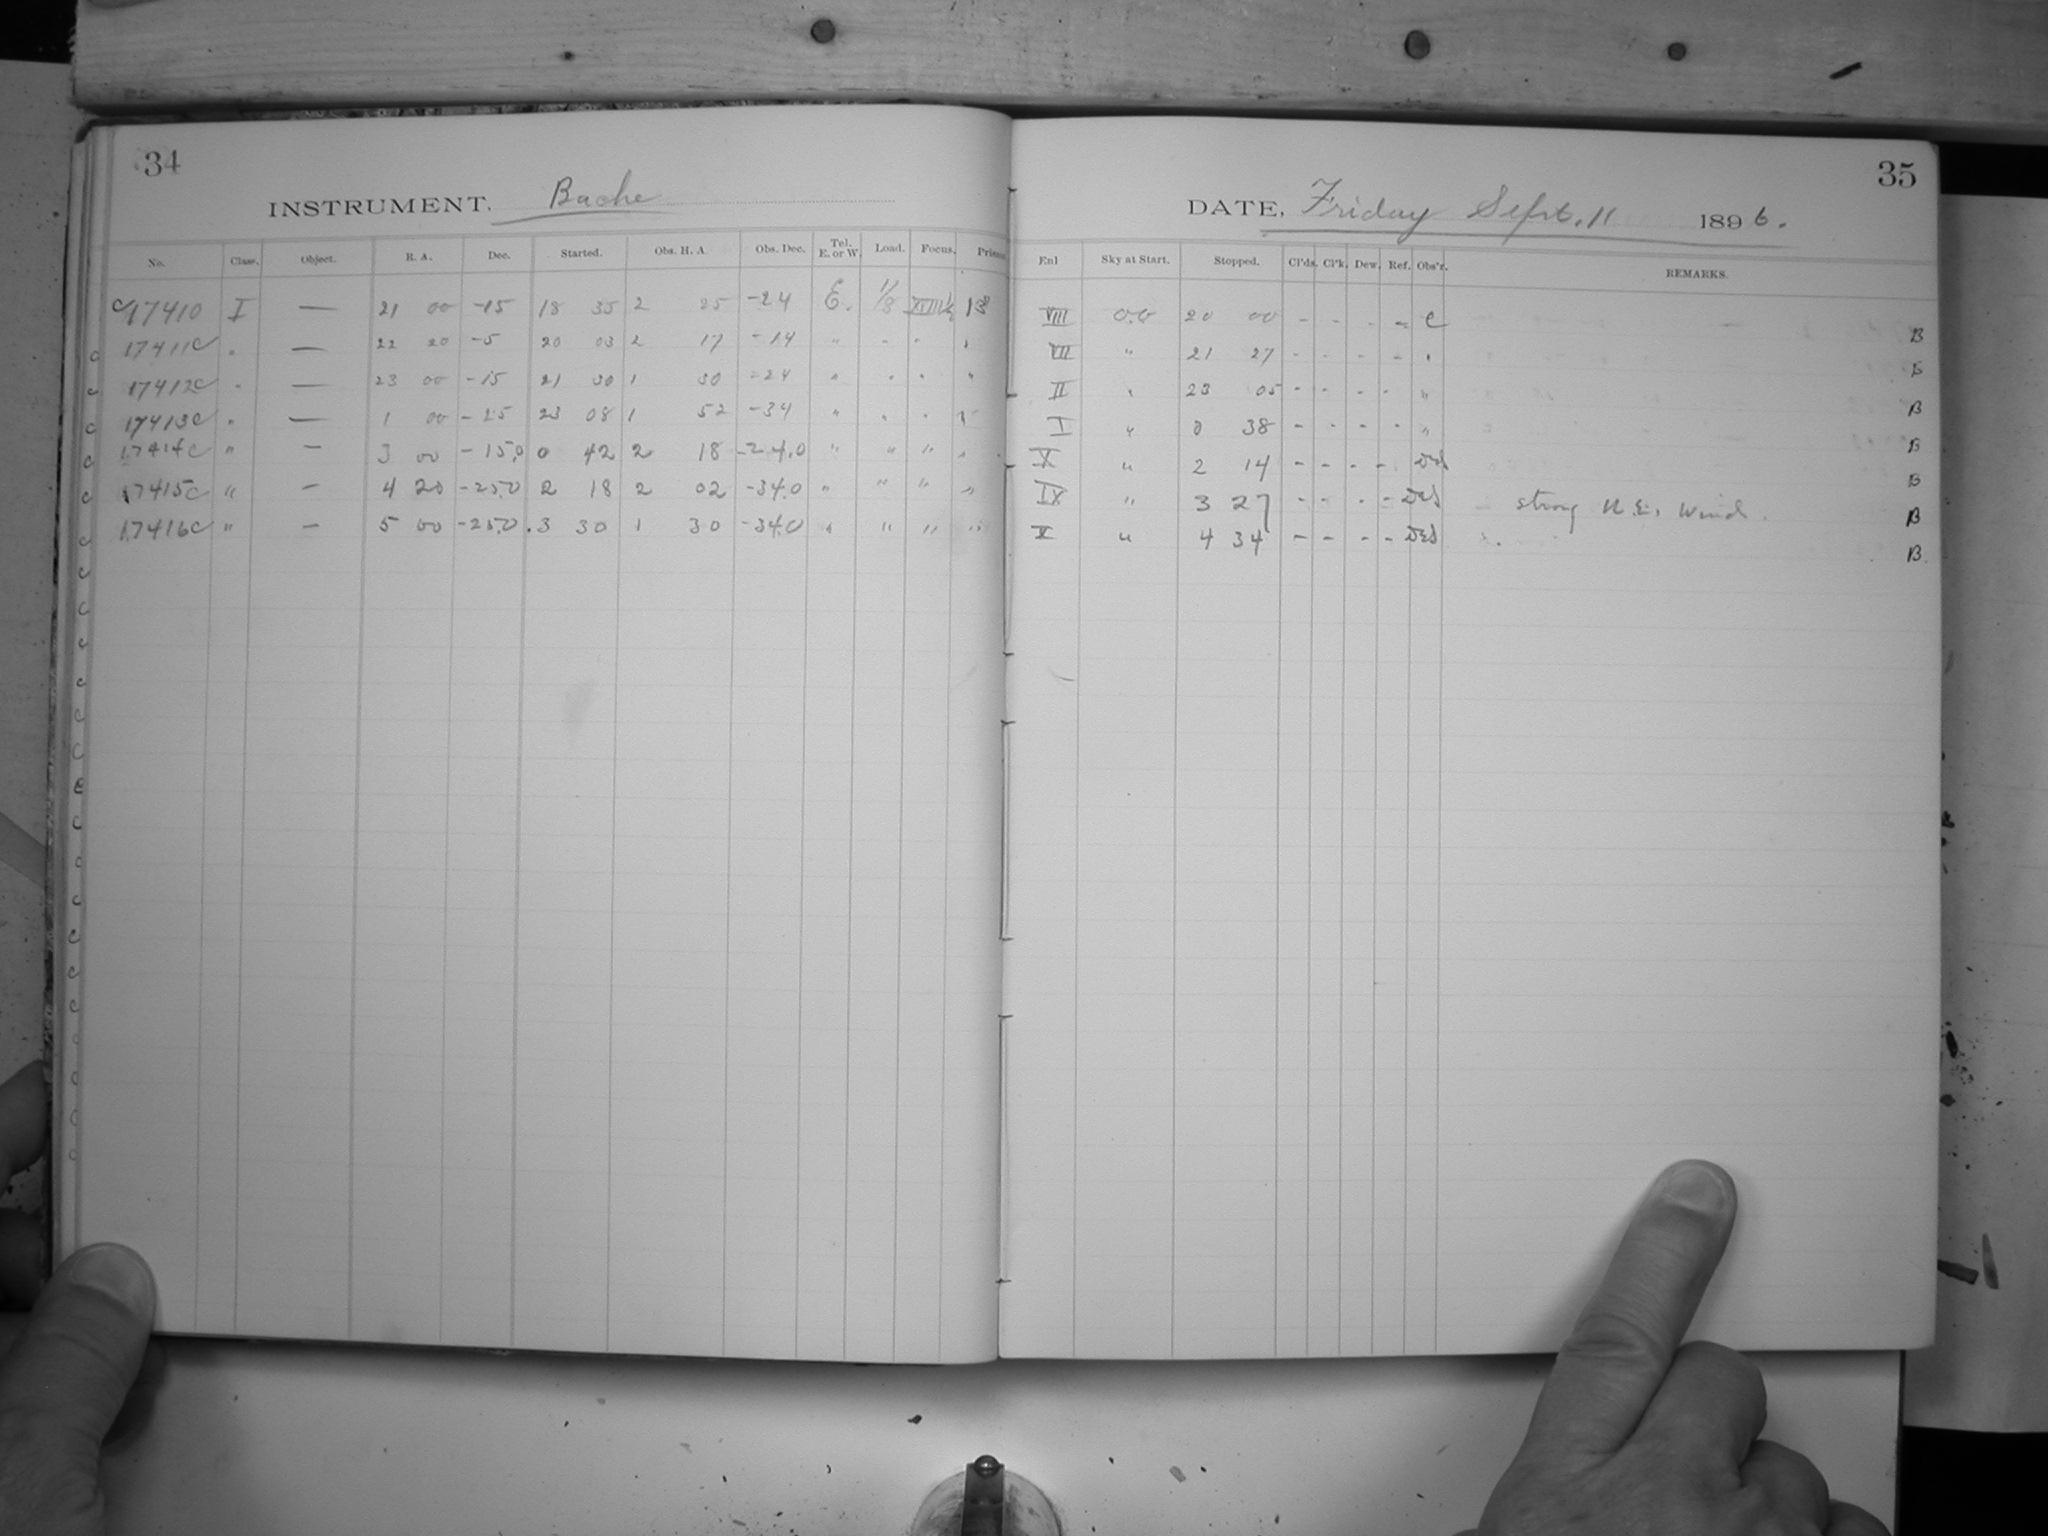 34
INSTRUMENT. Bache
No. Class. Object. R. A. Dec. Started. Obs. H. A. Obs. Dec. Tel. E. or W. Load. Focus.
17410 I — 21 00 -15 18 35 2 25 -24 E.
17411c — 22 20 -5 20 03 2 17 -14 "
17412c — 23 00 -15 21 30 1 30 -24 "
17413c — 1 00 -25 23 08 1 52 -34 "
17414c " — 3 00 -15.0 0 42 2 18 -24.0 " " "
17415c " — 4 20 -25.0 2 18 2 02 -34.0 " " " "
17416c " — 5 00 -25.0 3 30 1 30 -34.0 " " " "
35
DATE, Friday Sept. 11 1896.
Enl Sky at Start. Stopped. Cl'ds. Cl'k. Dew. Ref. Obs'r. REMARKS.
VIII 20 00 - - - - C B
VII " 21 27 - - - - B
II 23 05 - - - - " B
I " 0 38 - - - - " B
X " 2 14 - - - - B
IX " 3 27 - - - - strong N.E. Wind. B
X " 4 34 - - - - B